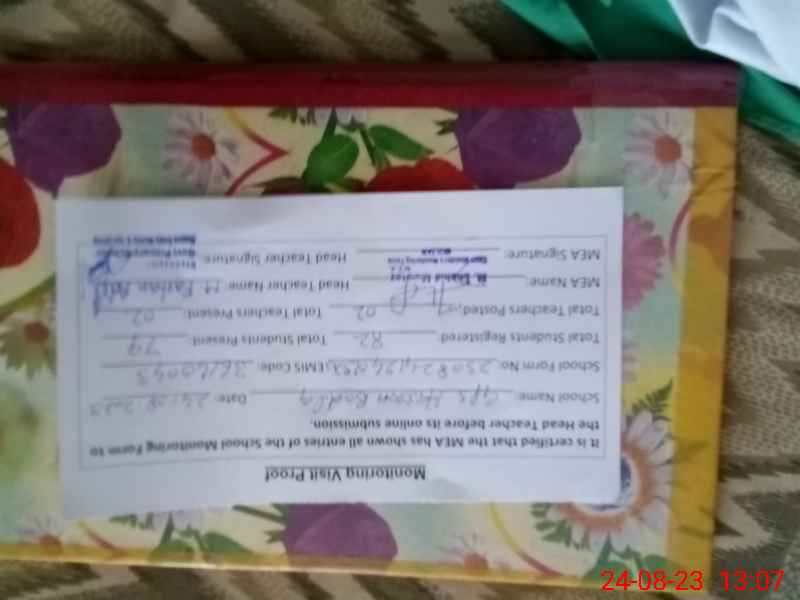 Monitoring Visit Proof
It is certified that the MEA has shown all entries of the School Monitoring Form to
the Head Teacher before its online submission.
School Name: GPS Hassan Date: 24.08.2023
School Form No: EMIS Code:
Total Students Registered: 82 Total Students Present: 79
Total Teachers Posted: 02 Total Teachers Present: 02
MEA Name: Head Teacher Name: M Farhan
MEA Signature: Head Teacher Signature:
24-08-23 13:07